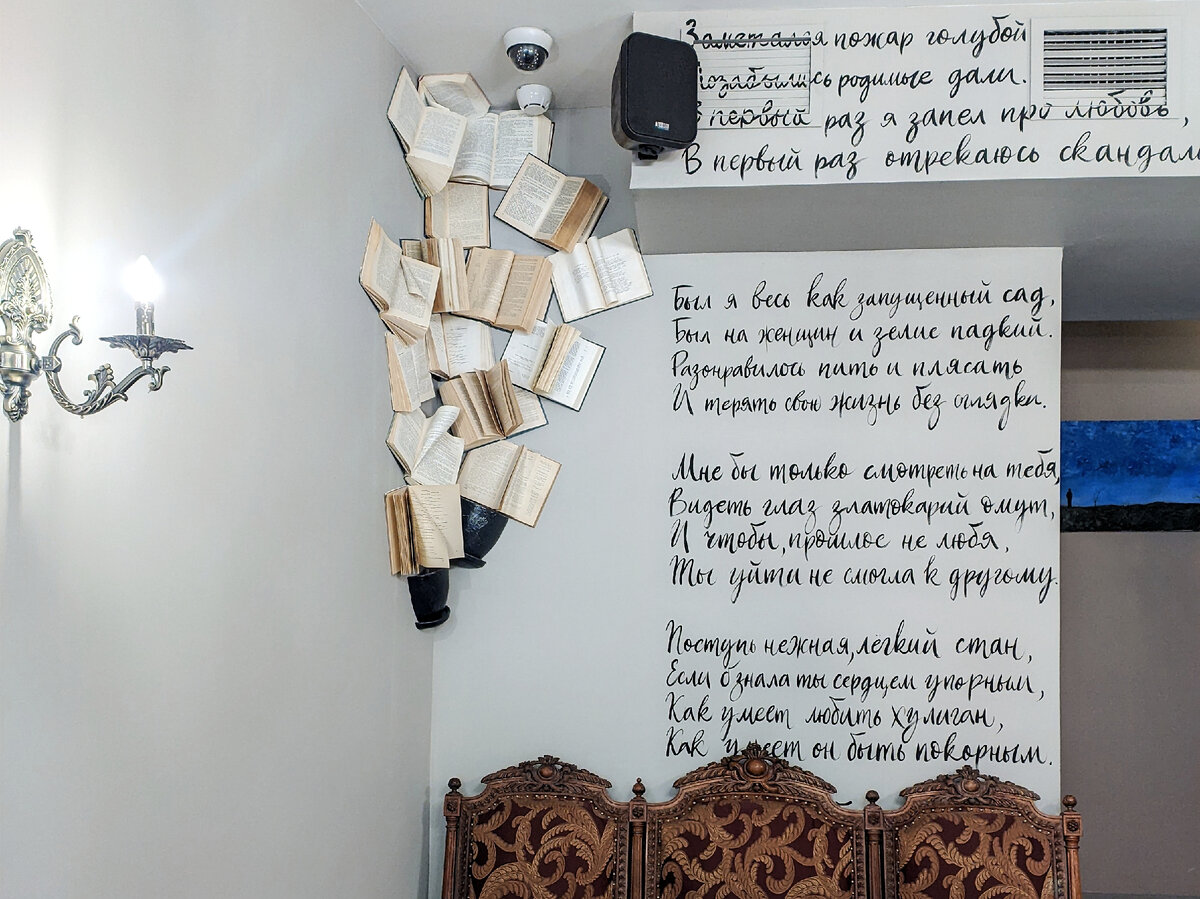 Заметался пожар голубой
Позабылись родимые дали.
В первый раз я запел про любовь,
В первый раз отрекаюсь скандали
Был я весь как запущенный сад,
Был на женщин и зелие падкий.
Разонравилось пить и плясать
И терять свою жизнь без оглядки.
Мне бы только смотреть на тебя,
Видеть глаз златокарий омут,
И чтобы, прошлое не любя,
Ты уйти не смогла к другому.
Поступь нежная, лёгкий стан,
Если б знала ты сердцем упорным,
Как умеет любить хулиган,
Как умеет он быть покорным.